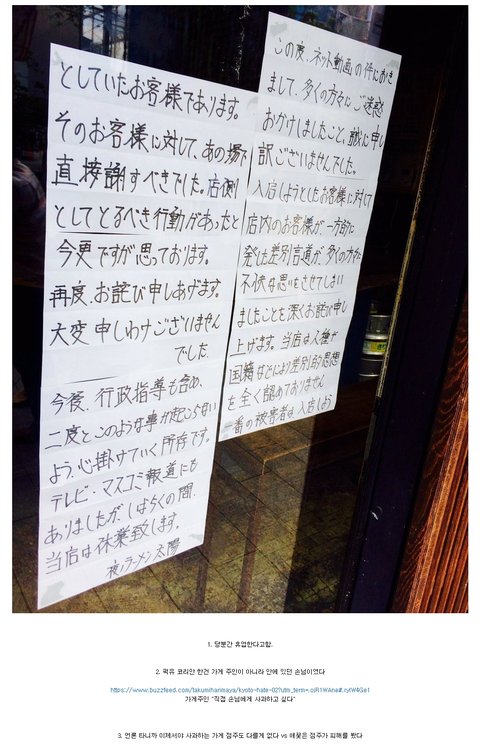 この度、ネット動画の件におき
まして、多くの方々にご迷惑
おかけしましたこと、誠に申し
訳ございませんでした。
入店しようとしたお客様に対して
店内のお客様が一方的に
発した差別言動が多くの方々に
不快な思いをさせてしまい
ましたことを深くお詫び申し
上げます。当店は人種が
国籍などにより差別的思想
を全く認めておりません
一番の被害者は入店しよう
としていたお客様であります。
そのお客様に対して、あの場で
直接謝すべきでした。店側
としてとるべき行動があったと
今更ですが思っております。
再度、お詫び申しあげます。
大変申しわけございません
でした。
今後、行政指導も含め、
二度とこのような事が起こらない
よう、心掛けていく所存です。
テレビ・マスコミ報道にも
ありましたが、しばらくの間、
当店は休業致します。
夜ノラーメン太陽
1. 당분간 휴업한다고함.
2. 퍽유 코리안 한건 가게 주인이 아니라 안에 있던 손님이였다
https://www.buzzfeed.com/takumiharimaya/kyoto-hate-02?utm_term=
가게주인 "직접 손님에게 사과하고 싶다"
3. 언론 타니까 이제서야 사과하는 가게 점주도 다를게 없다 vs 애꿎은 점주가 피해를 봤다